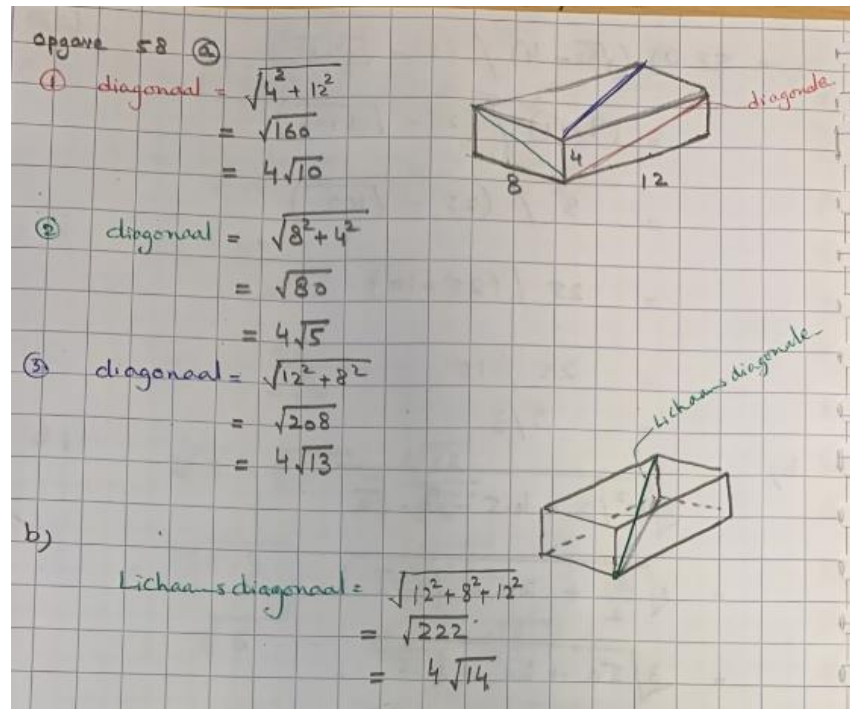 opgave 58 ⓐ
① diagonaal = √(4² + 12²)
= √160
= 4√10
diagonale
4
8
12
② diagonaal = √(8² + 4²)
= √80
= 4√5
③ diagonaal = √(12² + 8²)
= √208
= 4√13
Lichaamsdiagonale
b)
Lichaamsdiagonaal = √(12² + 8² + 12²)
= √222
= 4√14